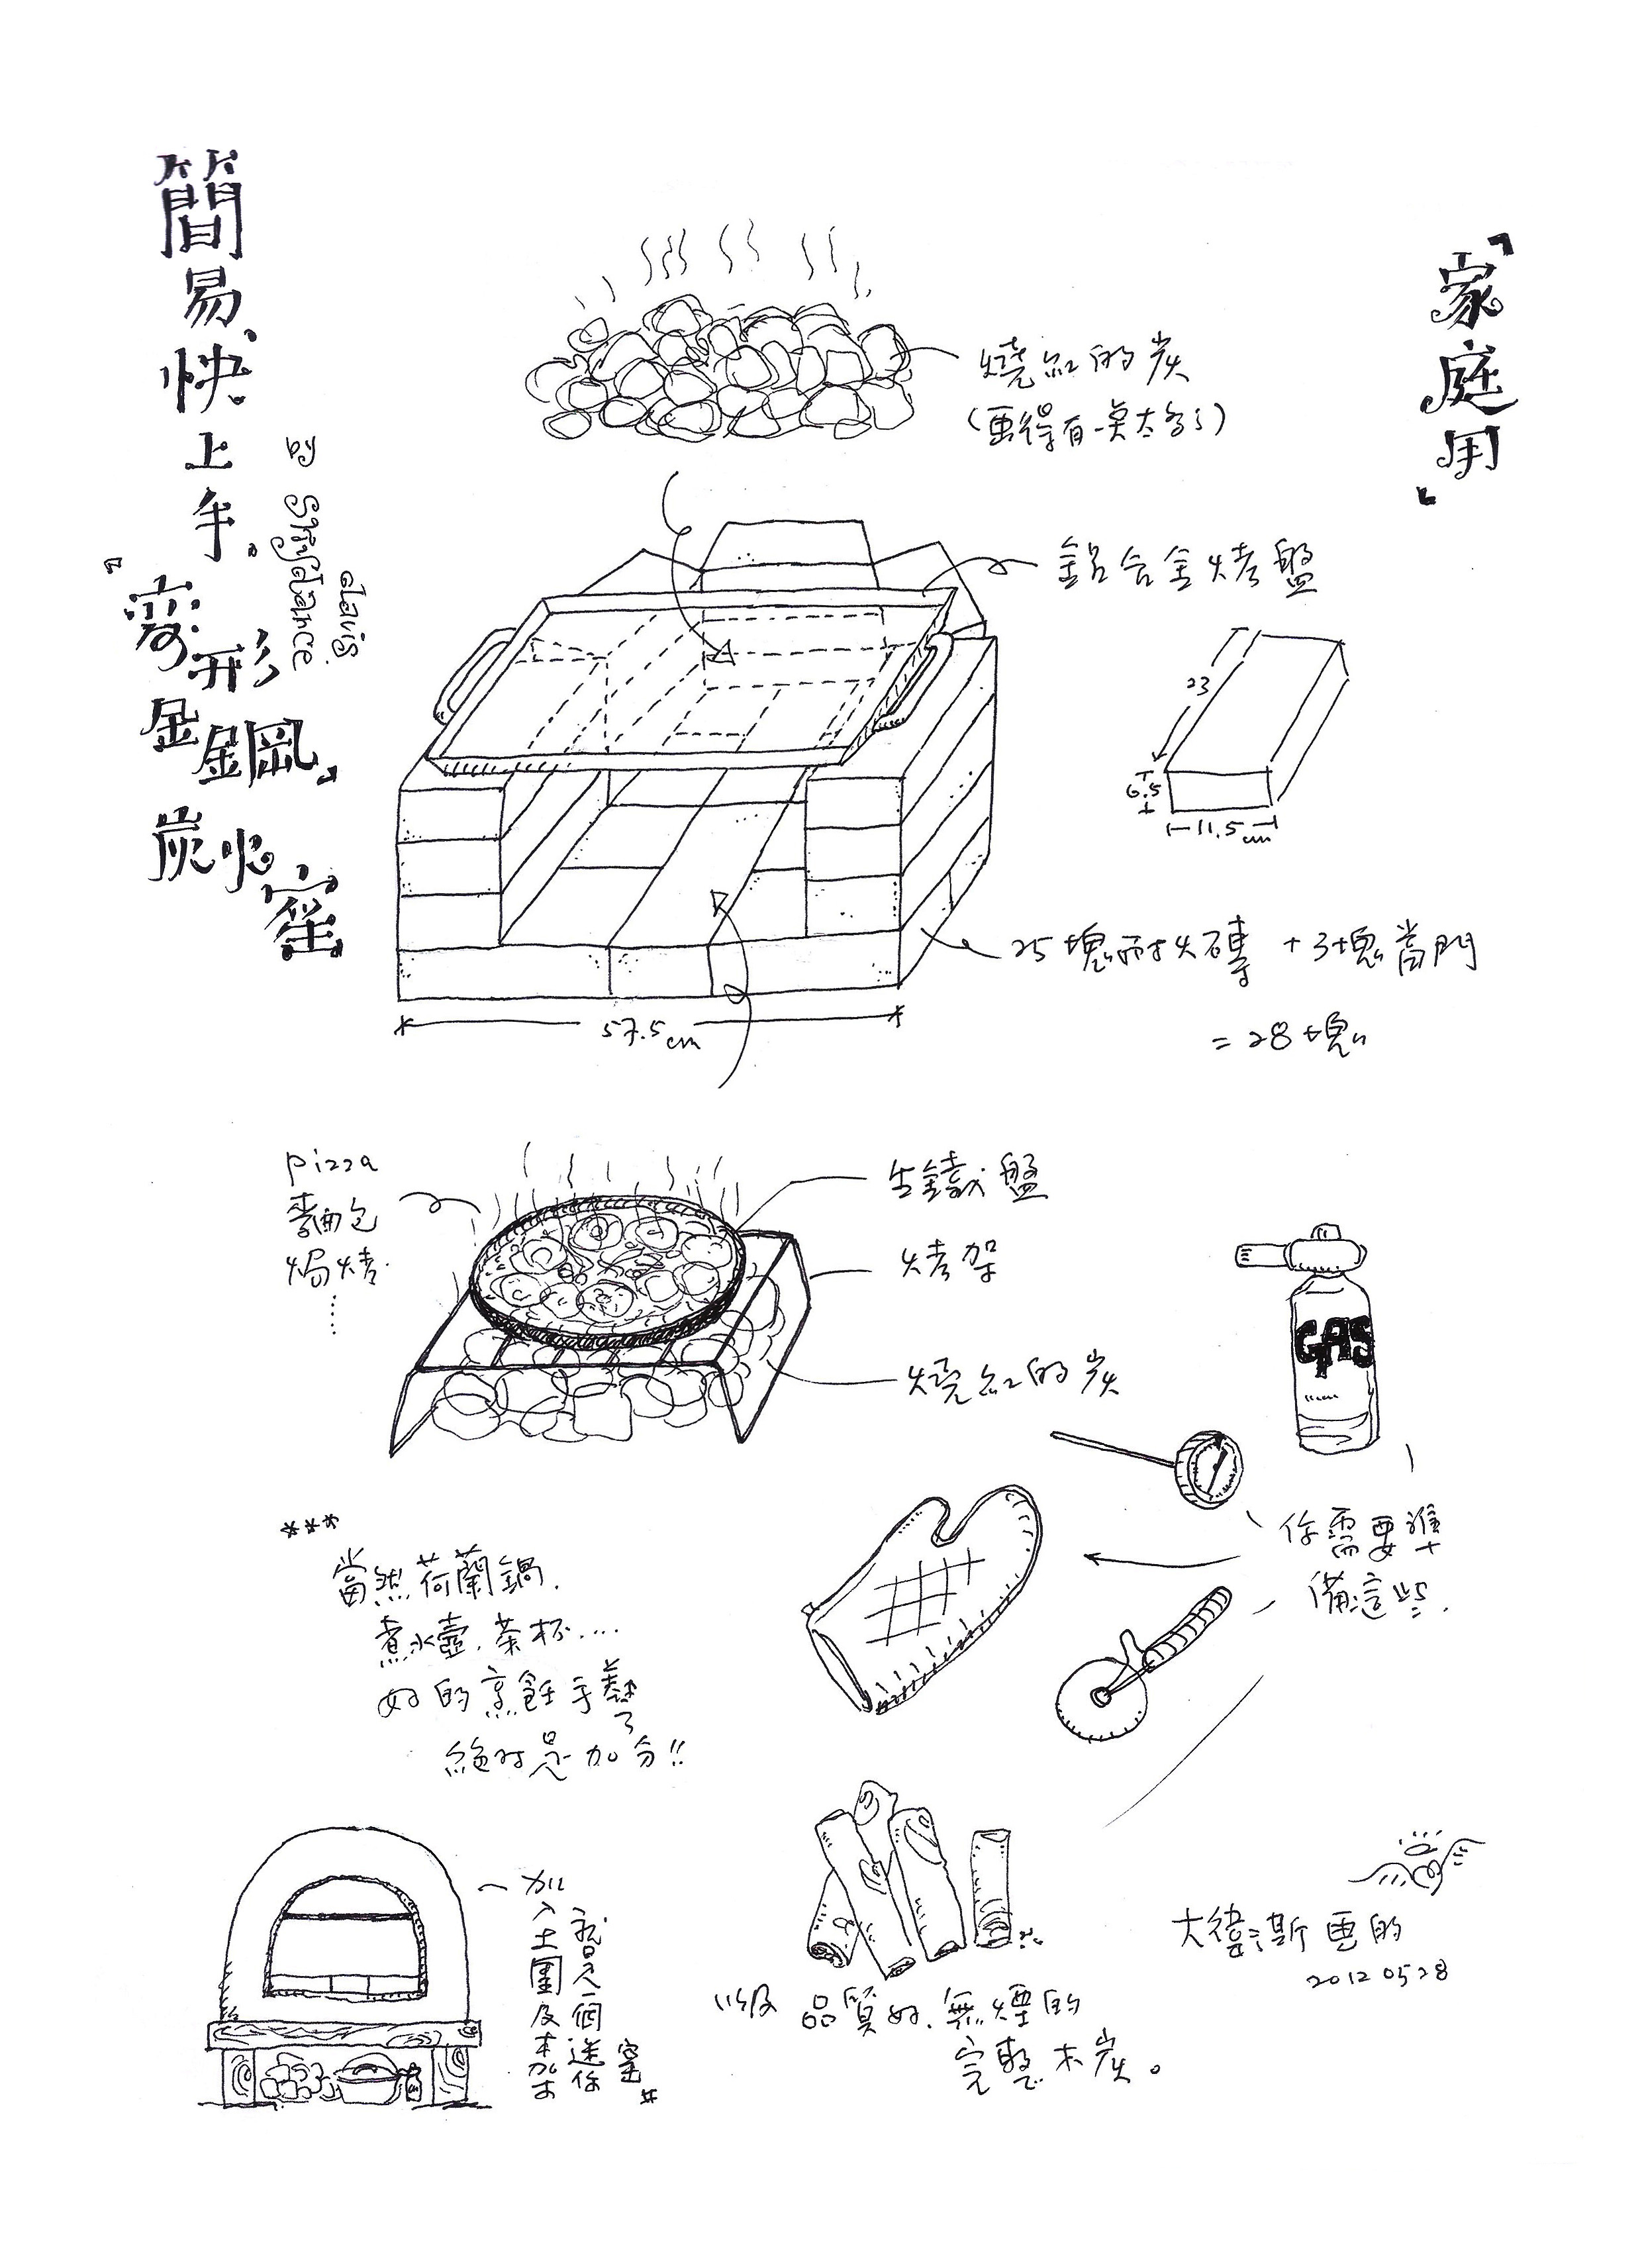 「家庭用」
簡易、快上手。
「變形金鋼」
炭火窑
@ Skydance
davis.
燒紅的炭
(畫得有一點太多了)
鋁合金烤盤
23
6.5
11.5cm
25塊耐火磚 +3塊當門
= 28塊
57.5cm
pizza
麵包
焗烤
……
生鐵盤
烤架
燒紅的炭
GAS
你需要準
備這些.
***
當然荷蘭鍋.
煮水壺.茶杯....
好的烹飪手藝
絕對是加分!!
加入土團及木架
就是一個迷你
窑#
以及 品質好.無煙的
完整木炭。
大衛斯畫的
2012 0528